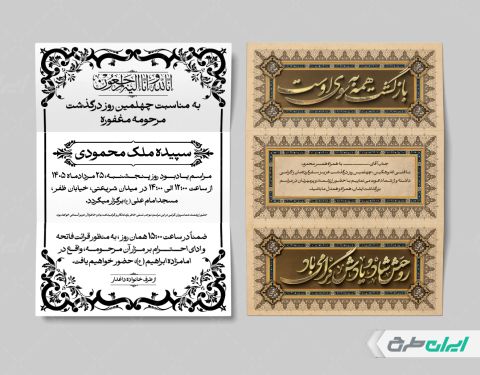 انا لله و انا الیه راجعون
به مناسبت چهلمین روز درگذشت
مرحومه مغفوره
سپیده ملک محمودی
مراسم یادبود روز پنجشنبه، ۲۵ مرداد ماه ۱۴۰۵
از ساعت ۱۲:۰۰ الی ۱۴:۰۰ در میدان شریعتی، خیابان ظفر،
مسجد امام علی (ع) برگزار میگردد.
ضمناً در ساعت ۱۵:۰۰ همان روز، به منظور قرائت فاتحه
و ادای احترام بر مزار آن مرحومه، واقع در
امامزاده ابراهیم (ع)، حضور خواهیم یافت.
از طرف خانواده داغدار
بازگشت همه به سوی اوست
جناب آقای
به همراه همسر محترمه
روحش شاد و یادش گرامی باد
ایران طرح